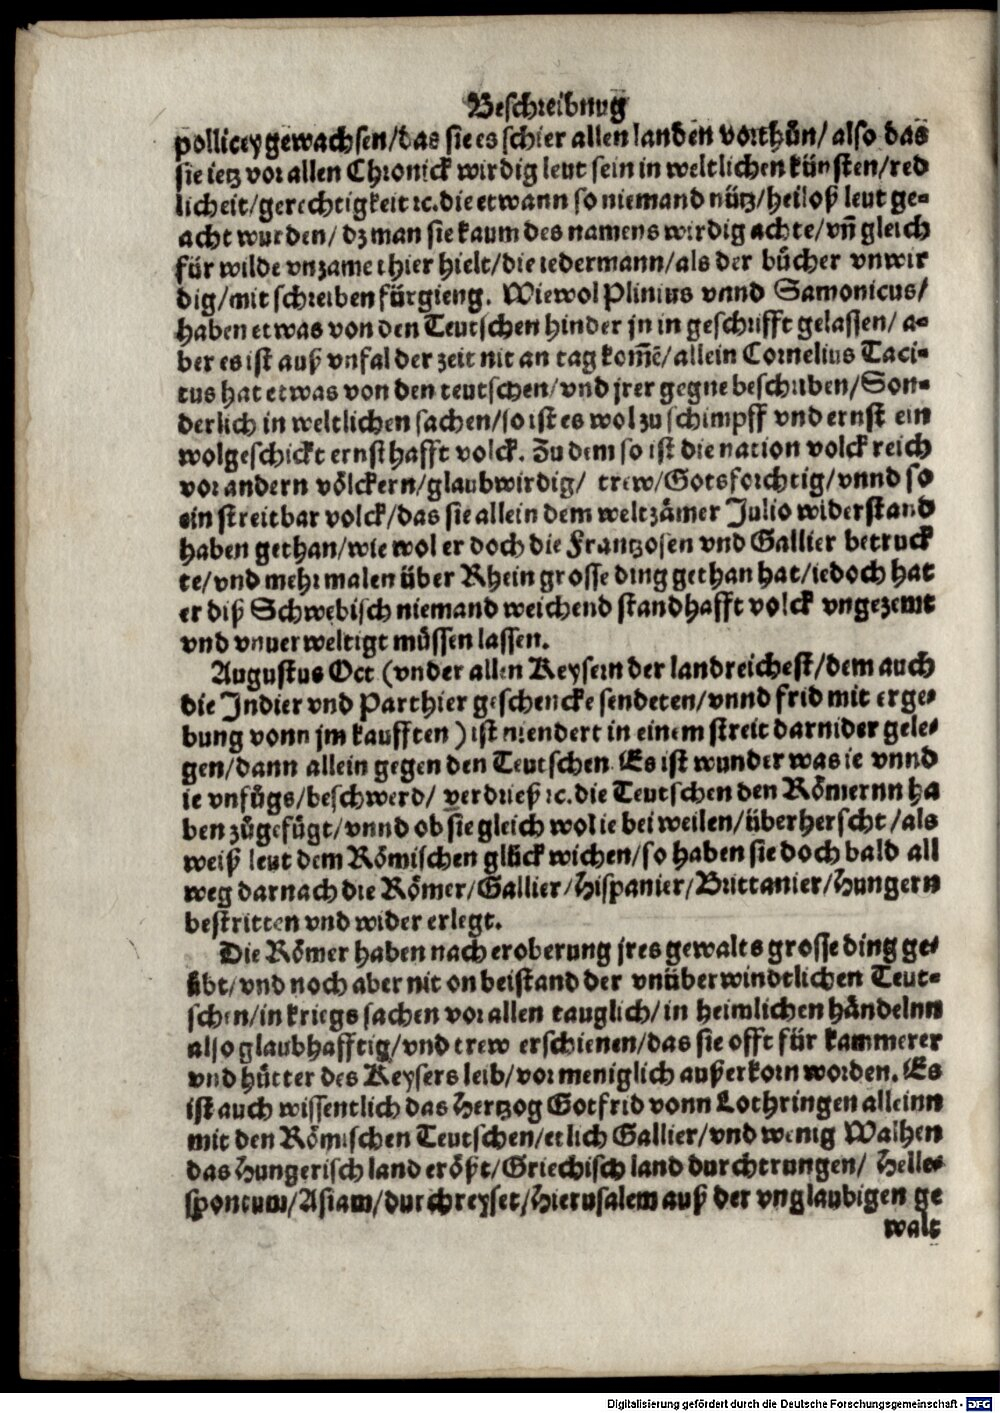 Beschreibnug
pollicey gewachsen/das sie es schier allen landen vorthůn/ also das
sie ietz vor allen Chronick wirdig leut sein in weltlichen künsten/red
licheit/gerechtigkeit ꝛc. die etwann so niemand nütz/heiloß leut ge-
acht wurden/ dz man sie kaum des namens wirdig achte/vñ gleich
für wilde vnzame thier hielt/die iedermann/als der bůcher vnwir
dig/mit schreiben fürgieng. Wiewol Plinius vnnd Samonicus/
haben etwas von den Teutschen hinder jn in geschrifft gelassen/ a-
ber es ist auß vnfal der zeit nit an tag kom̃ẽ/allein Cornelius Taci-
tus hat etwas von den teutschen/vnd jrer gegne beschriben/Son-
derlich in weltlichen sachen/so ist es wol zu schimpff vnd ernst ein
wolgeschickt ernsthafft volck. Zu dem so ist die nation volck reich
vor andern völckern/glaubwirdig/ trew/Gotsforchtig/vnnd so
ein streitbar volck/das sie allein dem weltzämer Julio widerstand
haben gethan/wie wol er doch die Frantzosen vnd Gallier betruck
te/vnd mehrmalen über Rhein grosse ding gethan hat/iedoch hat
er diß Schwebisch niemand weichend standhafft volck vngezemt
vnd vnuerweltigt müssen lassen.
Augustus Oct (vnder allen Keysern der landreichest/dem auch
die Indier vnd Parthier geschencke sendeten/vnnd frid mit erge-
bung vonn jm kaufften) ist niendert in einem streit darnider gele-
gen/dann allein gegen den Teutschen. Es ist wunder was ie vnnd
ie vnfůgs/beschwerd/ verdrieß ꝛc. die Teutschen den Römernn ha
ben zůgefůgt/vnnd ob sie gleich wol ie bei weilen/überherscht/als
weiß leut dem Römischen glück wichen/so haben sie doch bald all
weg darnach die Römer/Gallier/Hispanier/Brittanier/Hungern
bestritten vnd wider erlegt.
Die Römer haben nach eroberung jres gewalts grosse ding ge-
ůbt/vnd noch aber nit on beistand der vnüberwindtlichen Teut-
schen/in kriegs sachen vor allen tauglich/in heimlichen händelnn
also glaubhafftig/vnd trew erschienen/das sie offt für kammerer
vnd hůtter des Keysers leib/vor meniglich außerkorn worden. Es
ist auch wissentlich das Hertzog Gotfrid vonn Lothringen alleinn
mit den Römischen Teutschen/etlich Gallier/vnd wenig Walhen
das Hungerisch land erößt/Griechisch land durchtrungen/ Helle-
spontum/Asiam/durchreyset/Hierusalem auß der vnglaubigen ge
walt
Digitalisierung gefördert durch die Deutsche Forschungsgemeinschaft - DFG